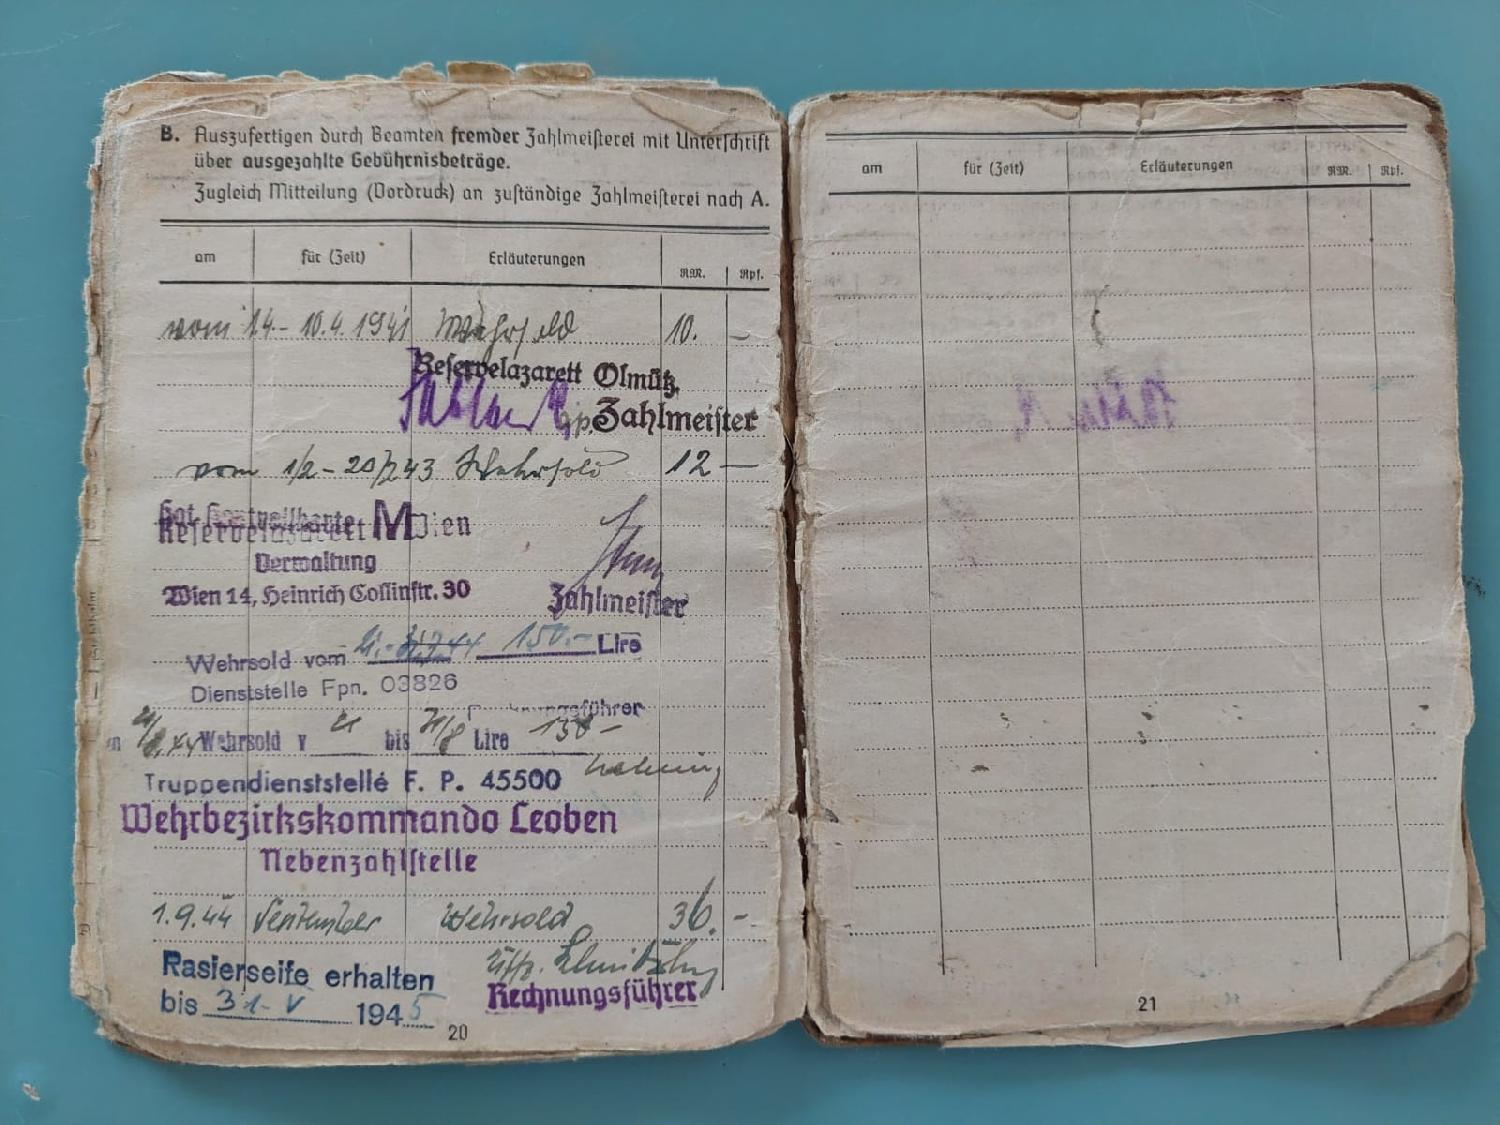 B. Auszufertigen durch Beamten fremder Zahlmeisterei mit Unterschrift
über ausgezahlte Gebührnisbeträge.
Zugleich Mitteilung (Vordruck) an zuständige Zahlmeisterei nach A.
am für (Zeit) Erläuterungen RM. Rpf.
vom 14.- 10.4.1941 Wehrsold 10. -
Reservelazarett Olmütz
Zahlmeister
vom 1/2 - 20/2 43 Wehrsold 12 -
Reservelazarett Wien
Verwaltung
Wien 14, Heinrich Collinstr. 30
Zahlmeister
Wehrsold vom 150.- Lire
Dienststelle Fpn. 03826
Rechnungsführer
Wehrsold v 21 bis 31/8 Lire 150-
Truppendienststelle F. P. 45500
Wehrbezirkskommando Leoben
Nebenzahlstelle
1.9.44 September Wehrsold 36. -
Uffz.
Rasierseife erhalten
bis 31. V 1945
Rechnungsführer
20
am für (Zeit) Erläuterungen RM. Rpf.
21